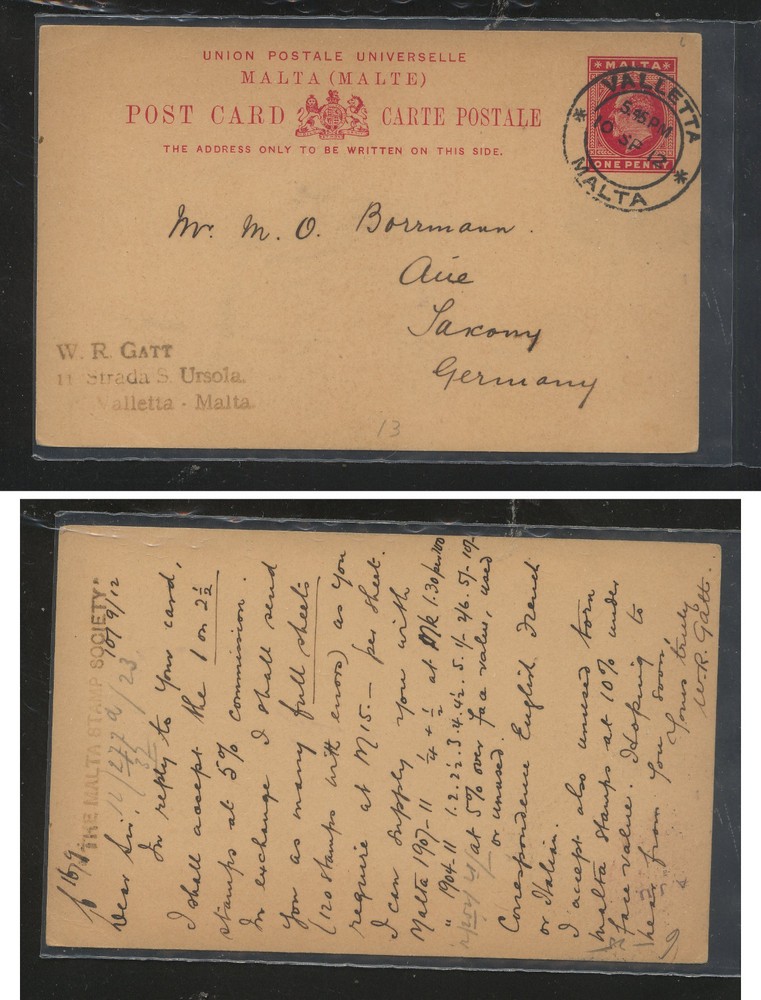 UNION POSTALE UNIVERSELLE
MALTA (MALTE)
POST CARD CARTE POSTALE
THE ADDRESS ONLY TO BE WRITTEN ON THIS SIDE.
* MALTA *
ONE PENNY
VALLETTA
5.45 PM
10 SP 12
MALTA
Mr. M. O. Borrmann.
Aue
Saxony
Germany
W. R. GATT
11 Strada S. Ursola.
Valletta - Malta
13
THE MALTA STAMP SOCIETY
10/9/12
Dear Sir,
In reply to your card,
I shall accept the 1 on 2½
stamps at 5% commission.
In exchange I shall send
you as many full sheets
(120 stamps with errors) as you
require at M15.— per sheet.
I can supply you with
Malta 1907-11 ¼ + ½ at Mk 1.30 per 100
" 1904-11 1. 2. 2½. 3. 4. 4½. 5. 1/- 2/6. 5/- 10/-
at 5% over face value, used
or unused.
Correspondence English French
or Italian.
I accept also unused torn
Malta stamps at 10% under
face value. Hoping to
hear from you soon,
Yours truly
W. R. Gatt.